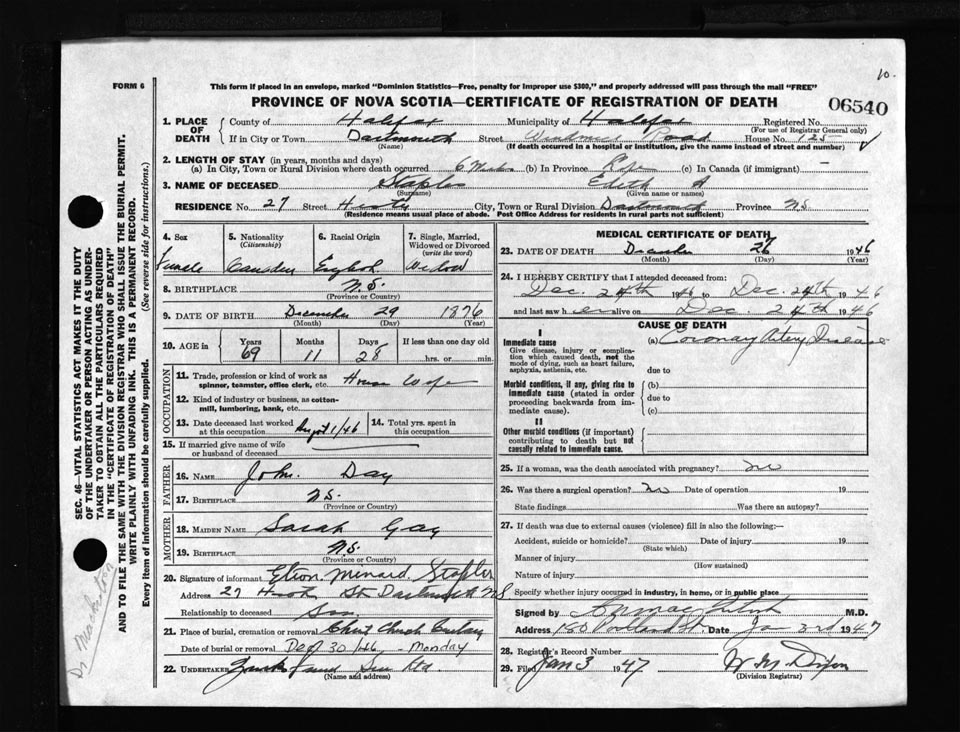 10.
FORM 6
This form if placed in an envelope, marked "Dominion Statistics—Free, penalty for improper use $300," and properly addressed will pass through the mail "FREE"
PROVINCE OF NOVA SCOTIA—CERTIFICATE OF REGISTRATION OF DEATH
06540
1. PLACE OF DEATH
County of Halifax Municipality of Halifax Registered No.
(For use of Registrar General only)
If in City or Town Dartmouth Street Windmill Road House No. 125
(Name) (If death occurred in a hospital or institution, give the name instead of street and number)
2. LENGTH OF STAY (in years, months and days)
(a) In City, Town or Rural Division where death occurred 6 (b) In Province Life (c) In Canada (if immigrant) —
3. NAME OF DECEASED Staples Edith A
(Surname) (Given name or names)
RESIDENCE No. 27 Street City, Town or Rural Division Dartmouth Province N.S.
(Residence means usual place of abode. Post Office Address for residents in rural parts not sufficient)
4. Sex Female
5. Nationality (Citizenship) Canadian
6. Racial Origin English
7. Single, Married, Widowed or Divorced (write the word) Widow
8. BIRTHPLACE N.S.
(Province or Country)
9. DATE OF BIRTH December 29 1876
(Month) (Day) (Year)
10. AGE in Years 69 Months 11 Days 28 If less than one day old hrs. or min.
OCCUPATION
11. Trade, profession or kind of work as spinner, teamster, office clerk, etc. House Wife
12. Kind of industry or business, as cotton-mill, lumbering, bank, etc.
13. Date deceased last worked at this occupation August 1/46
14. Total yrs. spent in this occupation
15. If married give name of wife or husband of deceased
FATHER
16. NAME John Day
17. BIRTHPLACE N.S.
(Province or Country)
MOTHER
18. MAIDEN NAME Sarah Gay
19. BIRTHPLACE N.S.
(Province or Country)
20. Signature of informant Menard Staples
Address 27 St. Dartmouth N S
Relationship to deceased Son
21. Place of burial, cremation or removal Christ Church Cemetery
Date of burial or removal Dec 30 46 - Monday
22. UNDERTAKER and Son Ltd
(Name and address)
MEDICAL CERTIFICATE OF DEATH
23. DATE OF DEATH December 26 1946
(Month) (Day) (Year)
24. I HEREBY CERTIFY that I attended deceased from:
Dec. 24th 1946 to Dec. 24th 1946
and last saw her alive on Dec. 24th 1946
CAUSE OF DEATH
I
Immediate cause
Give disease, injury or complication which caused death, not the mode of dying, such as heart failure, asphyxia, asthenia, etc.
(a) Coronary Artery Disease
due to
Morbid conditions, if any, giving rise to immediate cause (stated in order proceeding backwards from immediate cause).
(b)
due to
(c)
II
Other morbid conditions (if important) contributing to death but not causally related to immediate cause.
25. If a woman, was the death associated with pregnancy? no
26. Was there a surgical operation? no Date of operation 19
State findings Was there an autopsy?
27. If death was due to external causes (violence) fill in also the following:—
Accident, suicide or homicide? Date of injury 19
(State which)
Manner of injury
(How sustained)
Nature of injury
Specify whether injury occurred in industry, in home, or in public place
Signed by M.D.
Address 180 Portland St. Date Jan 3rd 1947
28. Registrar's Record Number
29. Filed Jan 3 1947 W. M. Dixon
(Division Registrar)
SEC. 46—VITAL STATISTICS ACT MAKES IT THE DUTY
OF THE UNDERTAKER OR PERSON ACTING AS UNDER-
TAKER TO OBTAIN ALL THE PARTICULARS REQUIRED
IN THE "CERTIFICATE OF REGISTRATION OF DEATH"
AND TO FILE THE SAME WITH THE DIVISION REGISTRAR WHO SHALL ISSUE THE BURIAL PERMIT.
WRITE PLAINLY WITH UNFADING INK. THIS IS A PERMANENT RECORD.
Every item of information should be carefully supplied. (See reverse side for instructions.)
Dr.